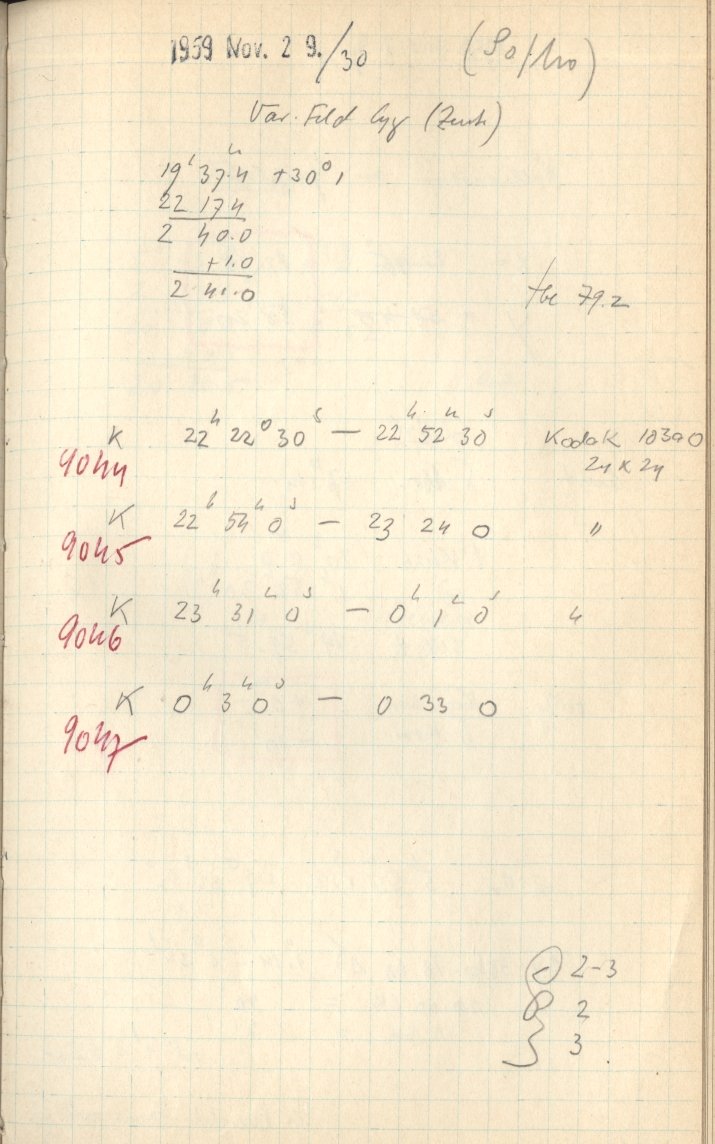 1959 Nov. 29./30 (So/Ho)
Var. Feld Cyg (Zentr)
19ʰ 37.4 +30°1
22 17 4
2 40.0
+1.0
2 41.0
79.2
K 22ʰ 22⁰ 30ˢ — 22ʰ 52ᵐ 30ˢ Kodak 103aO
9044 24 x 24
K 22ʰ 54ᵐ 0ˢ — 23 24 0 "
9045
K 23ʰ 31ᵐ 0ˢ — 0ʰ 1ᵐ 0ˢ "
9046
K 0ʰ 3ᵐ 0ˢ — 0 33 0
9047
2-3
2
3